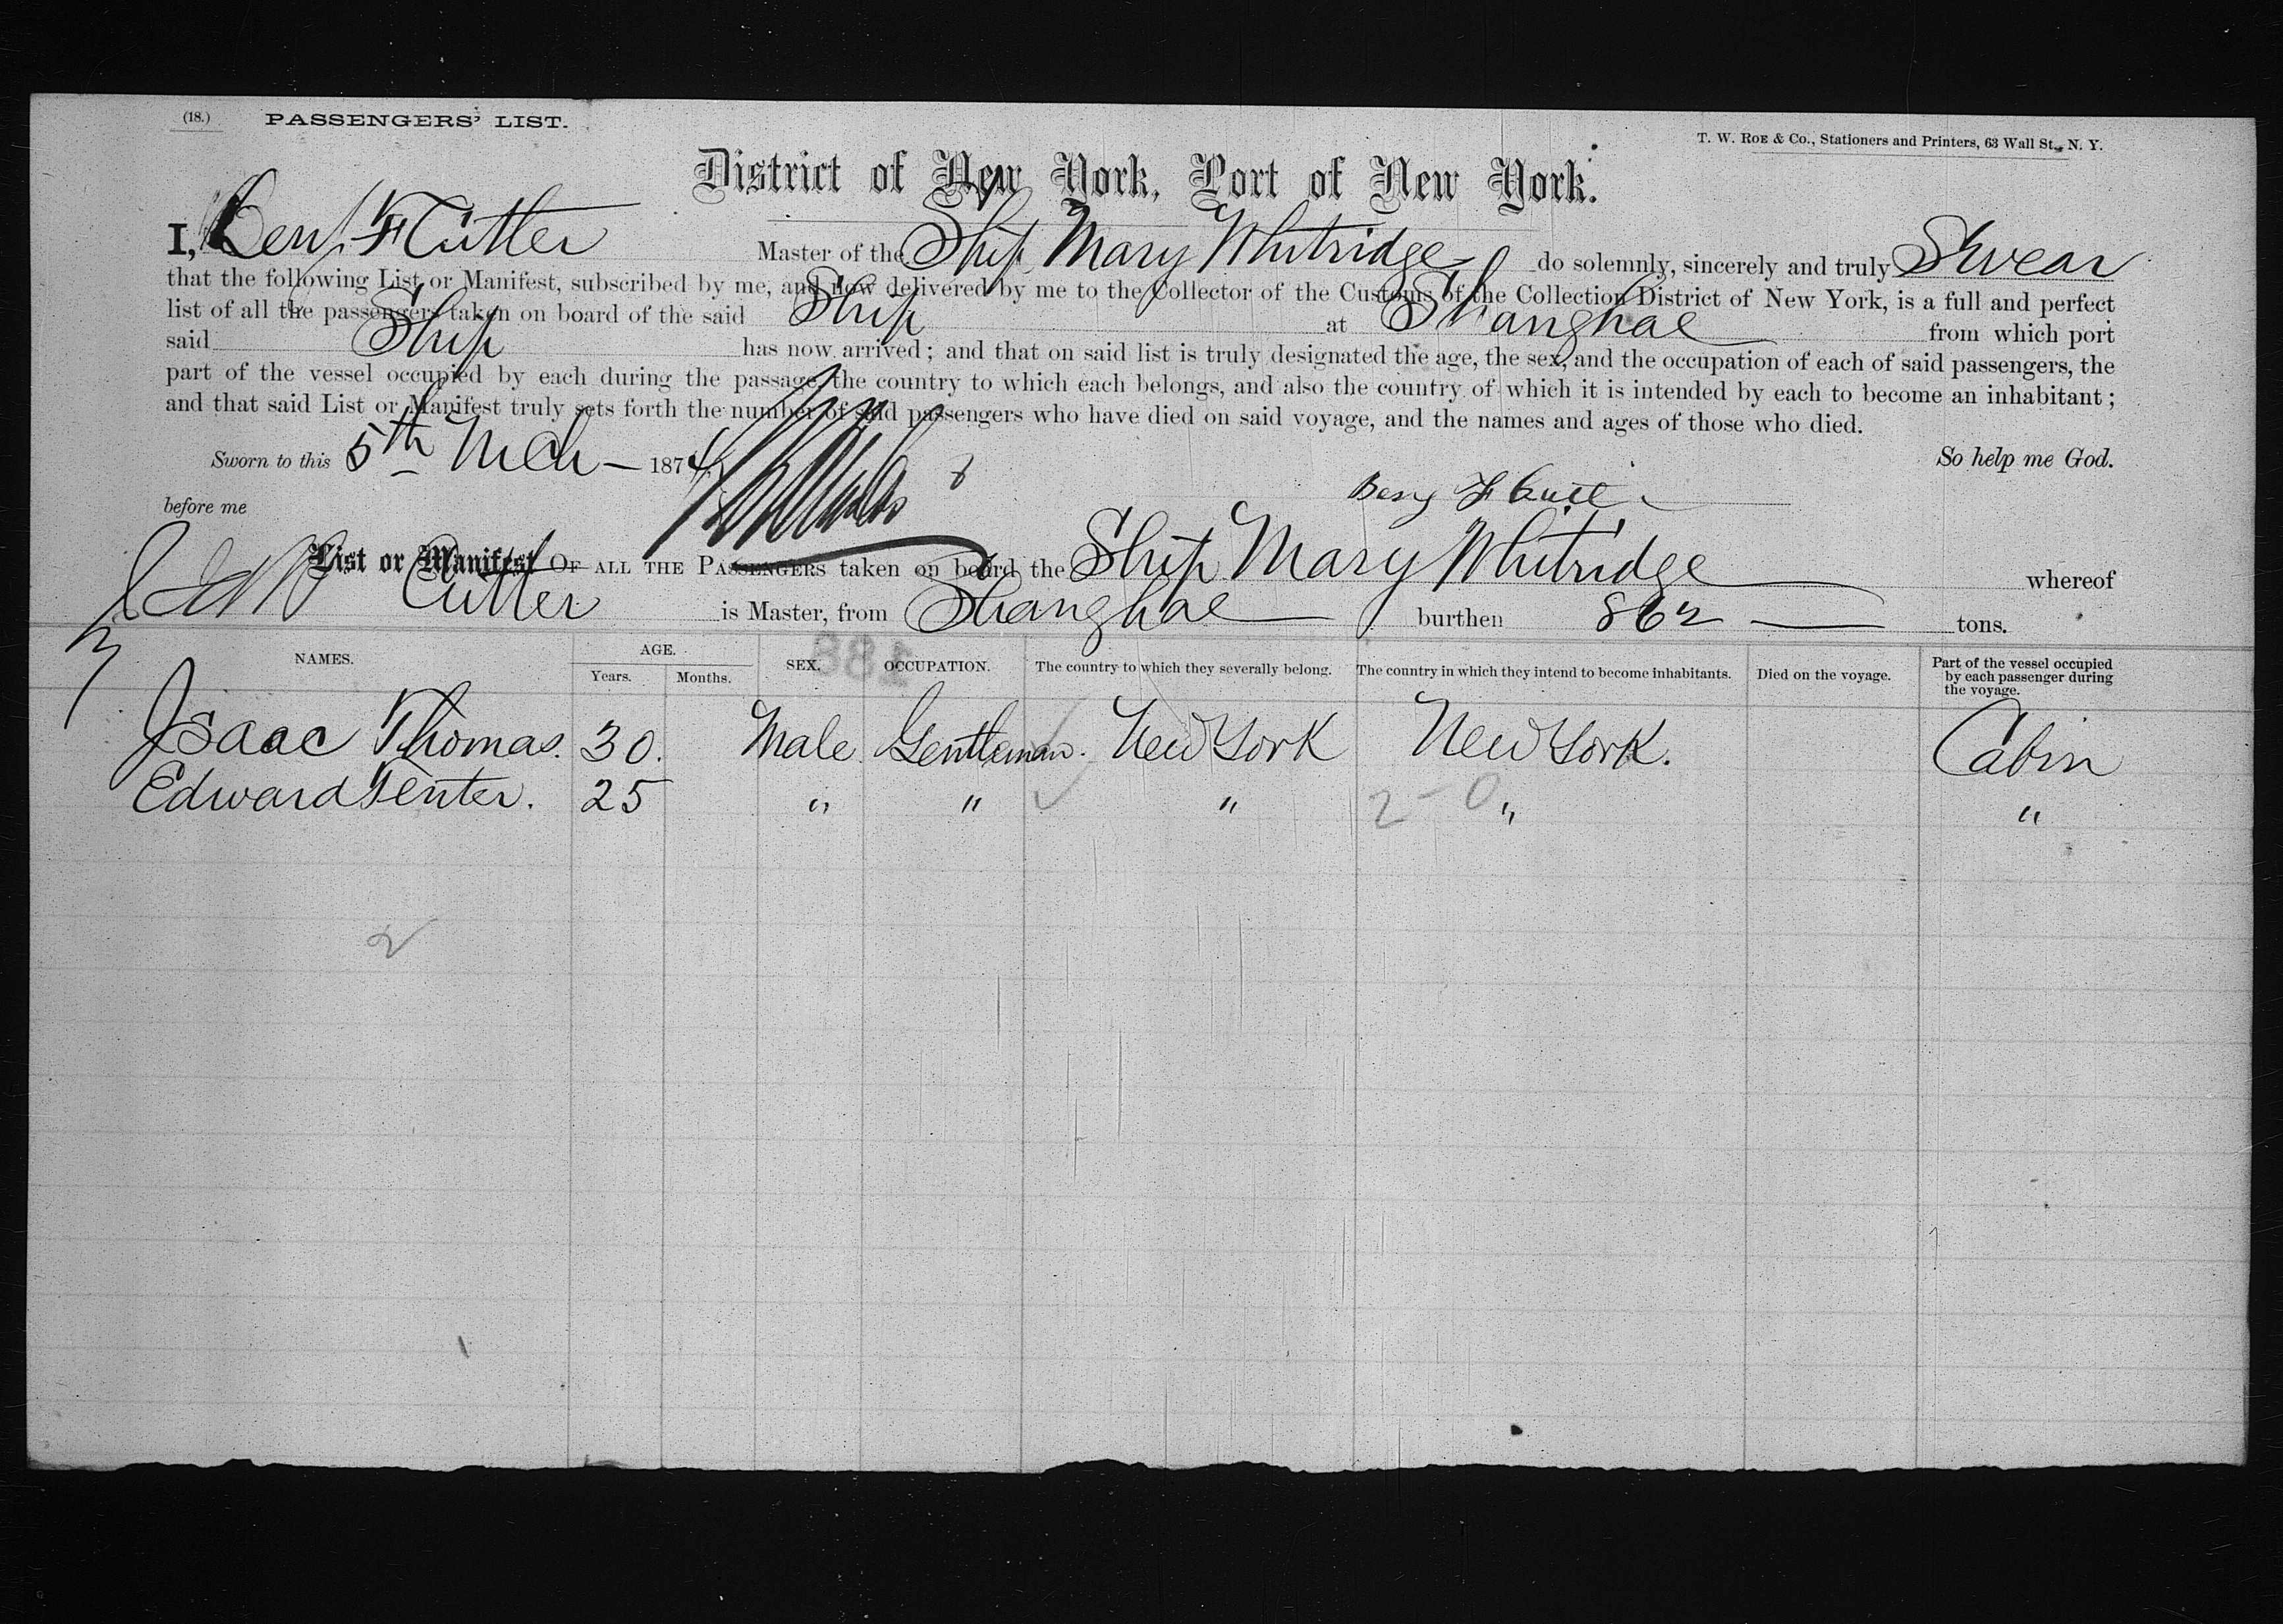 (18.) PASSENGERS' LIST.
T. W. ROE & Co., Stationers and Printers, 63 Wall St., N. Y.
District of New York, Port of New York.
I, Benj. F Cutler Master of the Ship Mary Whitridge do solemnly, sincerely and truly Swear
that the following List or Manifest, subscribed by me, and now delivered by me to the Collector of the Customs of the Collection District of New York, is a full and perfect
list of all the passengers taken on board of the said Ship at Shanghae from which port
said Ship has now arrived; and that on said list is truly designated the age, the sex, and the occupation of each of said passengers, the
part of the vessel occupied by each during the passage, the country to which each belongs, and also the country of which it is intended by each to become an inhabitant;
and that said List or Manifest truly sets forth the number of said passengers who have died on said voyage, and the names and ages of those who died.
Sworn to this 5th Mch - 1874 So help me God.
before me Benj F Cutler
List or Manifest OF ALL THE PASSENGERS taken on board the Ship Mary Whitridge whereof
Cutler is Master, from Shanghae burthen 862 tons.
NAMES. AGE. Years. Months. SEX. OCCUPATION. The country to which they severally belong. The country in which they intend to become inhabitants. Died on the voyage. Part of the vessel occupied by each passenger during the voyage.
Isaac Thomas. 30. Male. Gentleman. New York New York. Cabin
Edward Tenter. 25 " " " 2 - 0 " "
2